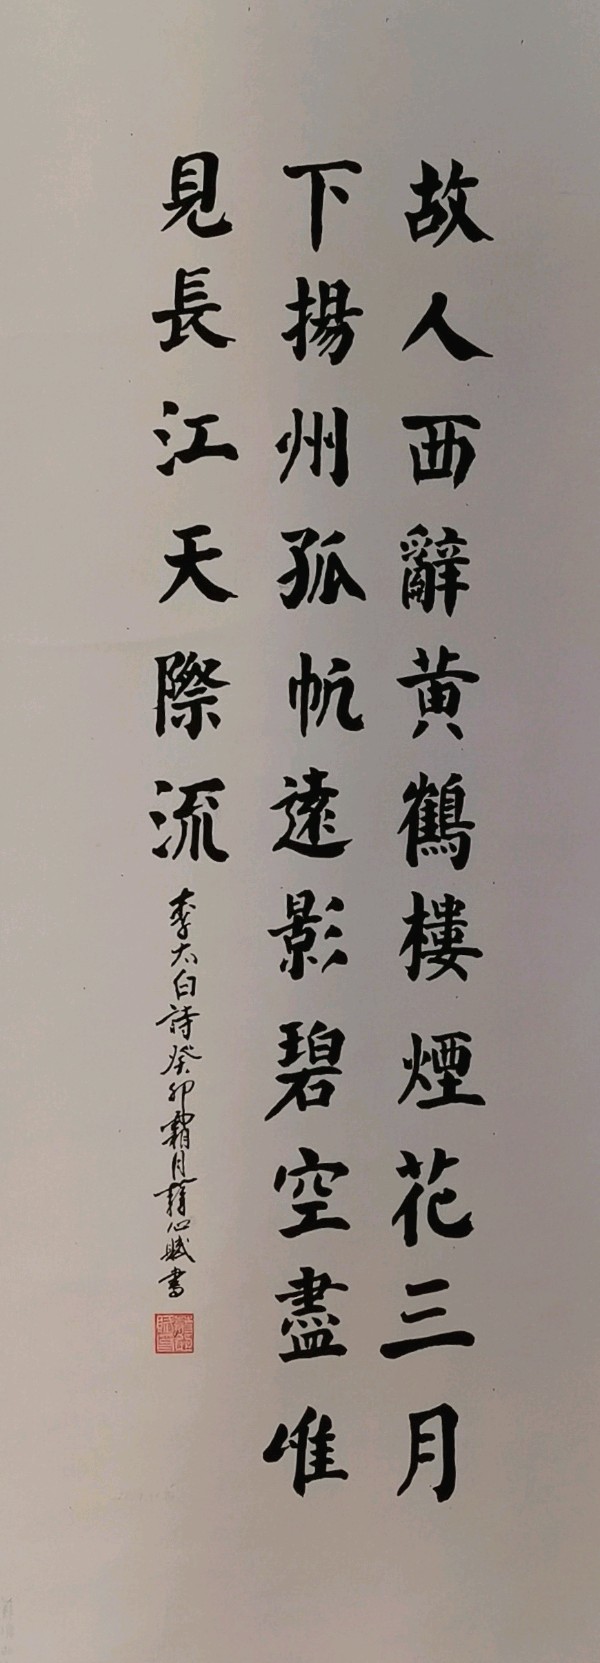 故人西辭黄鶴樓煙花三月
下揚州孤帆遠影碧空盡唯
見長江天際流
李太白詩癸卯霜月韓心賦書